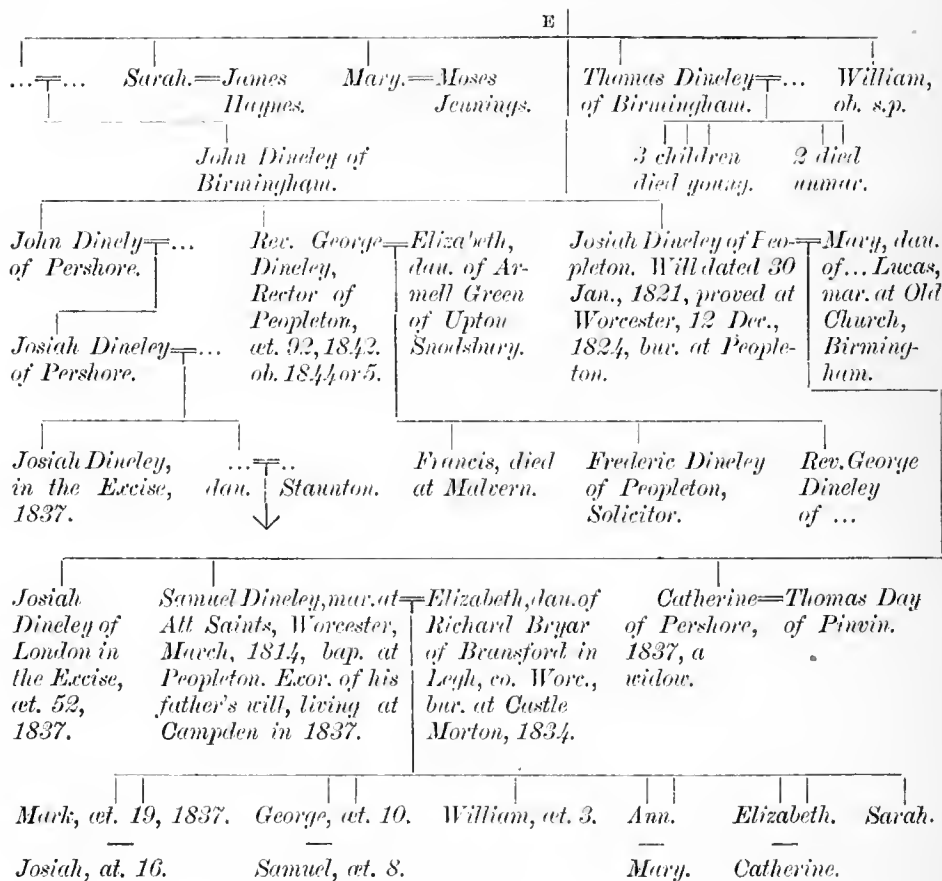 E
...=...
Sarah.=James
Haynes.
Mary.=Moses
Jennings.
Thomas Dineley=...
of Birmingham.
William,
ob. s.p.
John Dineley of
Birmingham.
3 children
died young.
2 died
unmar.
John Dinely=...
of Pershore.
Rev. George
Dineley,
Rector of
Peopleton,
æt. 92, 1842.
ob. 1844 or 5.
=Elizabeth,
dau. of Ar-
mell Green
of Upton
Snodsbury.
Josiah Dineley of Peo-
pleton. Will dated 30
Jan., 1821, proved at
Worcester, 12 Dec.,
1824, bur. at People-
ton.
=Mary, dau.
of... Lucas,
mar. at Old
Church,
Birming-
ham.
Josiah Dineley=...
of Pershore.
Josiah Dineley,
in the Excise,
1837.
...=..
dau. Staunton.
Francis, died
at Malvern.
Frederic Dineley
of Peopleton,
Solicitor.
Rev. George
Dineley
of ...
Josiah
Dineley of
London in
the Excise,
æt. 52,
1837.
Samuel Dineley, mar. at
All Saints, Worcester,
March, 1814, bap. at
Peopleton. Exor. of his
father's will, living at
Campden in 1837.
=Elizabeth, dau. of
Richard Bryar
of Bransford in
Legh, co. Worc.,
bur. at Castle
Morton, 1834.
Catherine=Thomas Day
of Pershore, of Pinvin.
1837, a
widow.
Mark, æt. 19, 1837. George, æt. 10. William, æt. 3. Ann. Elizabeth. Sarah.
Josiah, æt. 16. Samuel, æt. 8. Mary. Catherine.